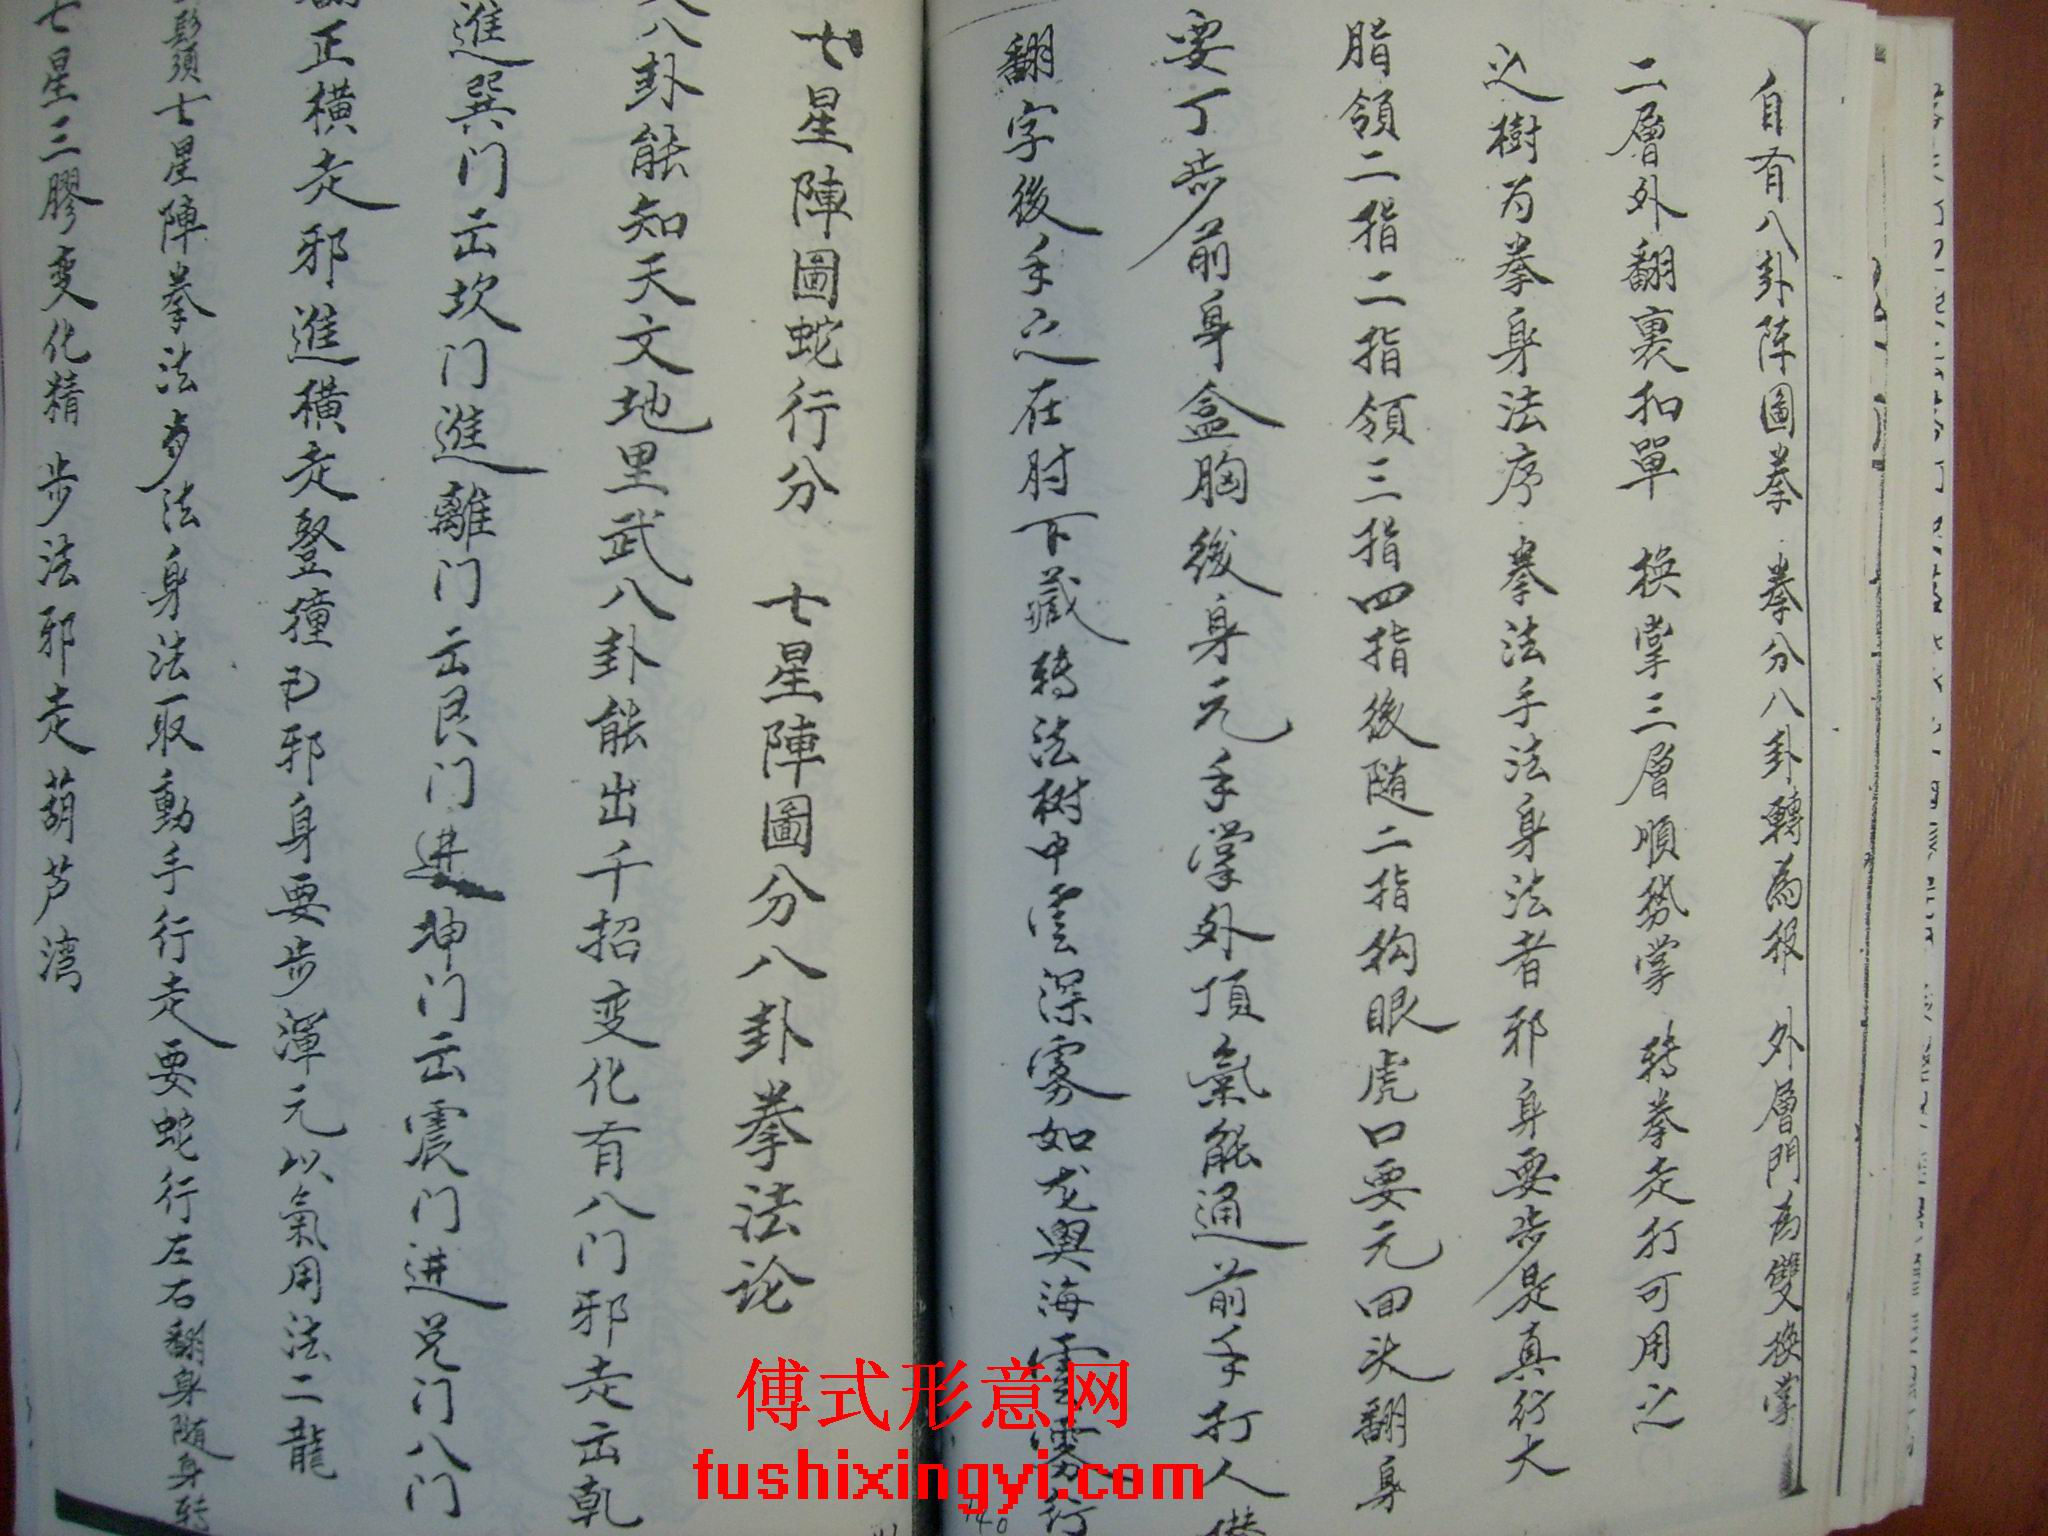 自有八卦阵圖拳 拳分八卦轉為根 外層門為雙換掌
二層外翻裏扣單 换掌三層順势掌 转拳走打可用之
之樹为拳身法序 拳法手法身法者邪身要步是真行大
脂領二指二指領三指四指後随二指钩眼虎口要元回头翻身
要丁步前身盒胸後身元手掌外頂氣能通前手打人
翻字後手之在肘下藏转法树中雲深雾如龙舆海雲雾行
140
七星陣圖蛇行分 七星陣圖分八卦拳法论
八卦能知天文地里武八卦能出千招变化有八门邪走出乾
進巽门出坎门進離门出艮门进坤门出震门进兑门八门
正横走邪進横走竪撞 邪身要步渾元以氣用法二龍
鬍須七星陣拳法步法身法取動手行走要蛇行左右翻身随身转
七星三膠变化精 步法邪走葫芦湾
傅式形意网
fushixingyi.com